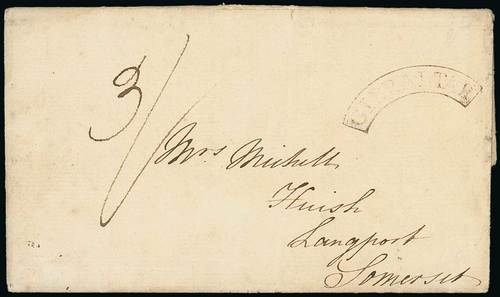 GIBRALTAR
3/
Mrs Michell
Huish
Langport
Somerset